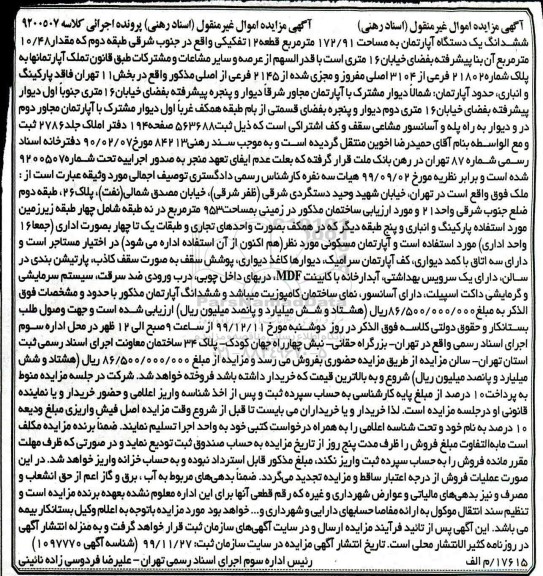 آگهی مزایده اموال غیر منقول (اسناد رهنی) آگهی مزایده اموال غیرمنقول (اسناد رهنی) پرونده اجرائی کلاسه ۹۲۰۰۵۰۷
ششدانگ یک دستگاه آپارتمان به مساحت ۱۷۲/۹۱ مترمربع قطعه۱۲تفکیکی واقع در جنوب شرقی طبقه دوم که مقدار۱۰/۴۸
مترمربع آن بنا پیشرفته بفضای خیابان۱۶ متری است با قدر السهم از عرصه و سایر مشاعات و مشترکات طبق قانون تملک آپارتمانها به
پلاک شماره۲۱۸۰۲ فرعی از ۳۱۰۴ اصلی مفروز و مجزی شده از ۲۱۴۵ فرعی از اصلی مذکور واقع در بخش۱۱ تهران فاقد پارکینگ
و انباری، حدود آپارتمان: شمالاً دیوار مشترک با آپارتمان مجاور شرقاً دیوار و پنجره پیشرفته بفضای خیابان۱۶ متری جنوباً اول دیوار
پیشرفته بفضای خیابان۱۶ متری دوم دیوار و پنجره بفضای قسمتی از بام طبقه همکف غرباً اول دیوار مشترک با آپارتمان مجاور دوم
در و دیوار به راه پله و آسانسور مشاعی سقف و کف اشتراکی است که ذیل ثبت۵۶۳۶۸۸ صفحه۱۹۴ دفتر املاک جلد۲۷۸۶ ثبت
و مع الواسطه بنام آقای حمیدرضا اخوین منتقل گردیده است و به موجب سند رهنی۸۴۲۱۳ مورخ۹۰/۰۲/۰۷ دفترخانه اسناد
رسمی شماره ۸۷ تهران در رهن بانک ملت قرار گرفته که بعلت عدم ایفای تعهد منجر به صدور اجراییه تحت شماره۹۲۰۰۵۰۷
شده است و برابر نظریه مورخ ۹۹/۰۹/۰۲ هیات سه نفره کارشناس رسمی دادگستری توصیف اجمالی مورد وثیقه عبارت است از :
ملک فوق واقع است در تهران، خیابان شهید وحید دستگردی شرقی (ظفر شرقی)، خیابان مصدق شمالی(نفت)، پلاک۲۶، طبقه دوم
ضلع جنوب شرقی واحد۲۱ و مورد ارزیابی ساختمان مذکور در زمینی بمساحت۹۵۳ مترمربع در نه طبقه شامل چهار طبقه زیرزمین
مورد استفاده پارکینگ و انباری و پنج طبقه دیگر که در همکف بصورت واحدهای تجاری و طبقات یک تا چهار بصورت اداری (جمعا۱۶
واحد اداری) مورد استفاده است و آپارتمان مسکونی مورد نظر(هم اکنون از آن استفاده اداره می شود) در اختیار مستاجر است و
دارای سه اتاق با کمد دیواری، کف آپارتمان سرامیک، دیوارها کاغذ دیواری، پوشش سقف به صورت سقف کاذب، پارتیشن بندی در
سالن، دارای یک سرویس بهداشتی، آبدارخانه با کابینت MDF، دربهای داخل چوبی، درب ورودی ضد سرقت، سیستم سرمایشی
و گرمایشی داکت اسپیلت، دارای آسانسور، نمای ساختمان کامپوزیت میباشد و ششدانگ آپارتمان مذکور با حدود و مشخصات فوق
الذکر به مبلغ۸۶/۵۰۰/۰۰۰/۰۰۰ریال (هشتاد و شش میلیارد و پانصد میلیون ریال) ارزیابی شده است و جهت وصول طلب
بستانکار و حقوق دولتی کلاسه فوق الذکر در روز دوشنبه مورخ ۹۹/۱۲/۱۱ از ساعت ۹ صبح الی ۱۲ ظهر در محل اداره سوم
اجرای اسناد رسمی واقع در تهران- بزرگراه حقانی- نبش چهارراه جهان کودک- پلاک ۳۴ ساختمان معاونت اجرای اسناد رسمی ثبت
استان تهران- سالن مزایده از طریق مزایده حضوری بفروش می رسد و مزایده از مبلغ ۸۶/۵۰۰/۰۰۰/۰۰۰ ریال (هشتاد و شش
میلیارد و پانصد میلیون ریال) شروع و به بالاترین قیمت که خریدار داشته باشد فروخته خواهد شد. شرکت در جلسه مزایده منوط
به پرداخت۱۰ درصد از مبلغ پایه کارشناسی به حساب سپرده ثبت و پس از اخذ شناسه واریز اعلامی و حضور خریدار و یا نماینده
قانونی او درجلسه مزایده است. لذا خریدار و یا خریداران می بایست تا قبل از شروع وقت مزایده اصل فیش واریزی مبلغ ودیعه
۱۰ درصد به نام خود و تحت شناسه اعلامی را به همراه درخواست کتبی خود به واحد اجرا تسلیم نمایند. ضمنا برنده مزایده مکلف
است مابه‌التفاوت مبلغ فروش را ظرف مدت پنج روز از تاریخ مزایده به حساب صندوق ثبت تودیع نماید و در صورتی که ظرف مهلت
مقرر مانده فروش را به حساب سپرده ثبت واریز نکند، مبلغ مذکور قابل استرداد نبوده و به حساب خزانه واریز خواهد شد. در این
صورت عملیات فروش از درجه اعتبار ساقط و مزایده تجدید می‌گردد. ضمناً بدهی‌های مربوط به آب ، برق و گاز اعم از حق انشعاب و
مصرف و نیز بدهی‌های مالیاتی و عوارض شهرداری و غیره که رقم قطعی آنها برای این اداره معلوم نشده بعهده برنده مزایده است و
تنظیم سند انتقال موکول به ارائه مفاصا حسابهای دارایی و شهرداری و... خواهد بود مورد مزایده باتوجه به اعلام وکیل بستانکار بیمه
می باشد. این آگهی پس از تائید فرآیند مزایده ارسال و در سایت آگهی‌های سازمان ثبت قرار خواهد گرفت و به منزله انتشار آگهی
در روزنامه کثیرالانتشار محلی است. تاریخ انتشار آگهی مزایده در سایت سازمان ثبت: ۹۹/۱۱/۲۷ (شناسه آگهی ۱۰۹۷۷۷۰)
۱۷۶۱۵/م الف رئیس اداره سوم اجرای اسناد رسمی تهران - علیرضا فردوسی زاده نائینی